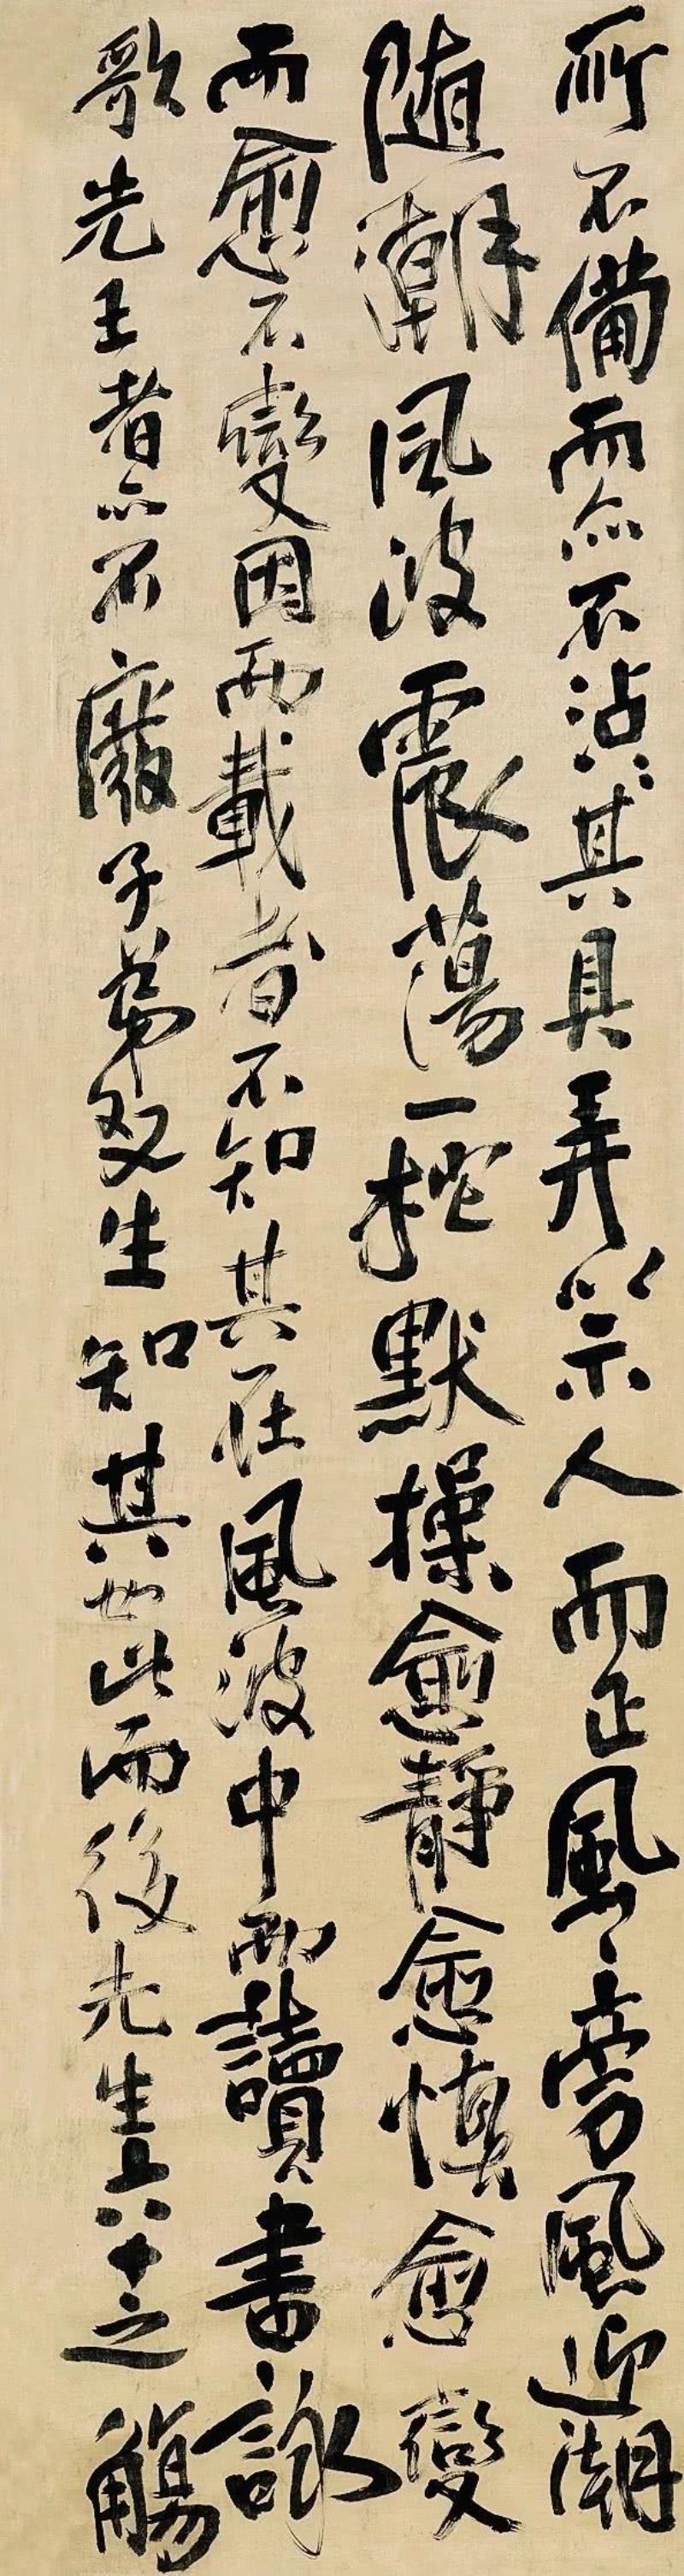 所不備而亦不沾沾其具弄人而正風旁風迎潮
隨潮風波震蕩一柁默操愈靜愈慎愈變
而愈不變因而載者不知其在風波中而讀書詠
歌先王者亦不廢子弟友生知其如此而後先生六十之觴